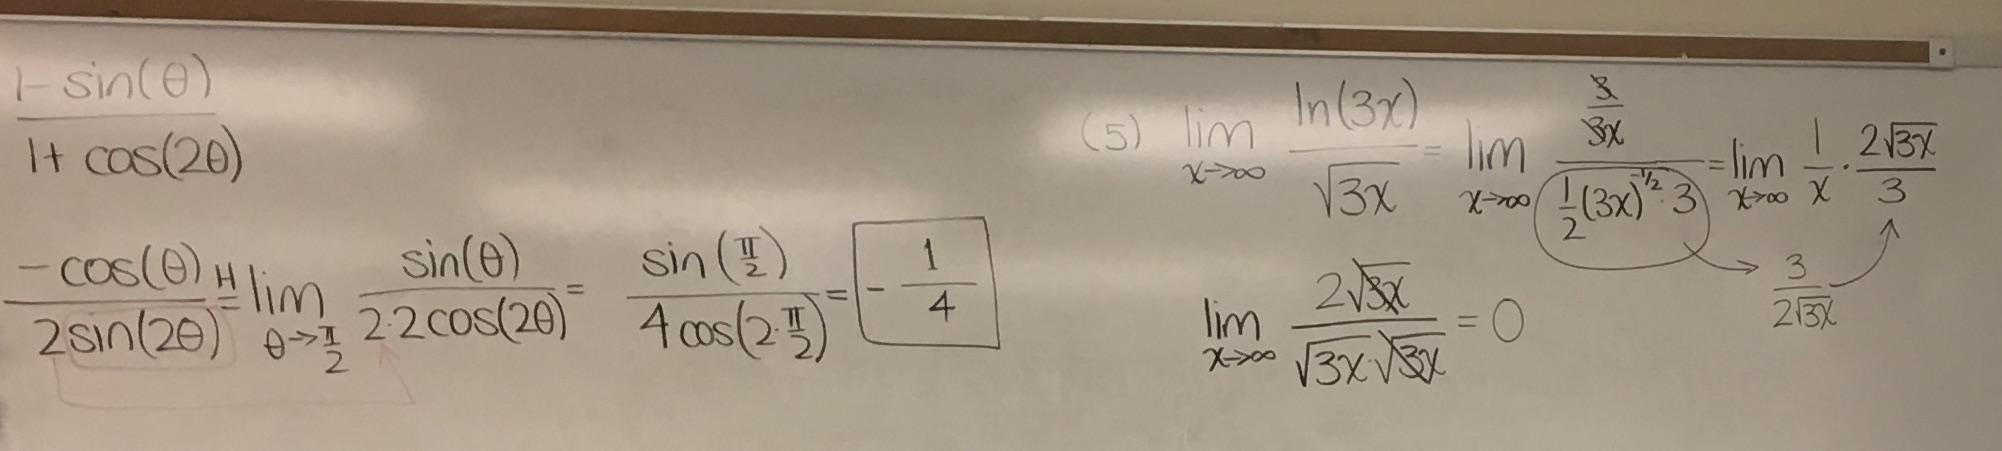 1-sin(θ)/1+cos(2θ)
-cos(θ)/2sin(2θ) =H lim θ→π/2 sin(θ)/2·2cos(2θ) = sin(π/2)/4cos(2·π/2) = -1/4
(5) lim x→∞ ln(3x)/√3x = lim x→∞ (3/3x)/(1/2(3x)^-1/2·3) = lim x→∞ 1/x · 2√3x/3
3/2√3x
lim x→∞ 2√3x/√3x·√3x = 0